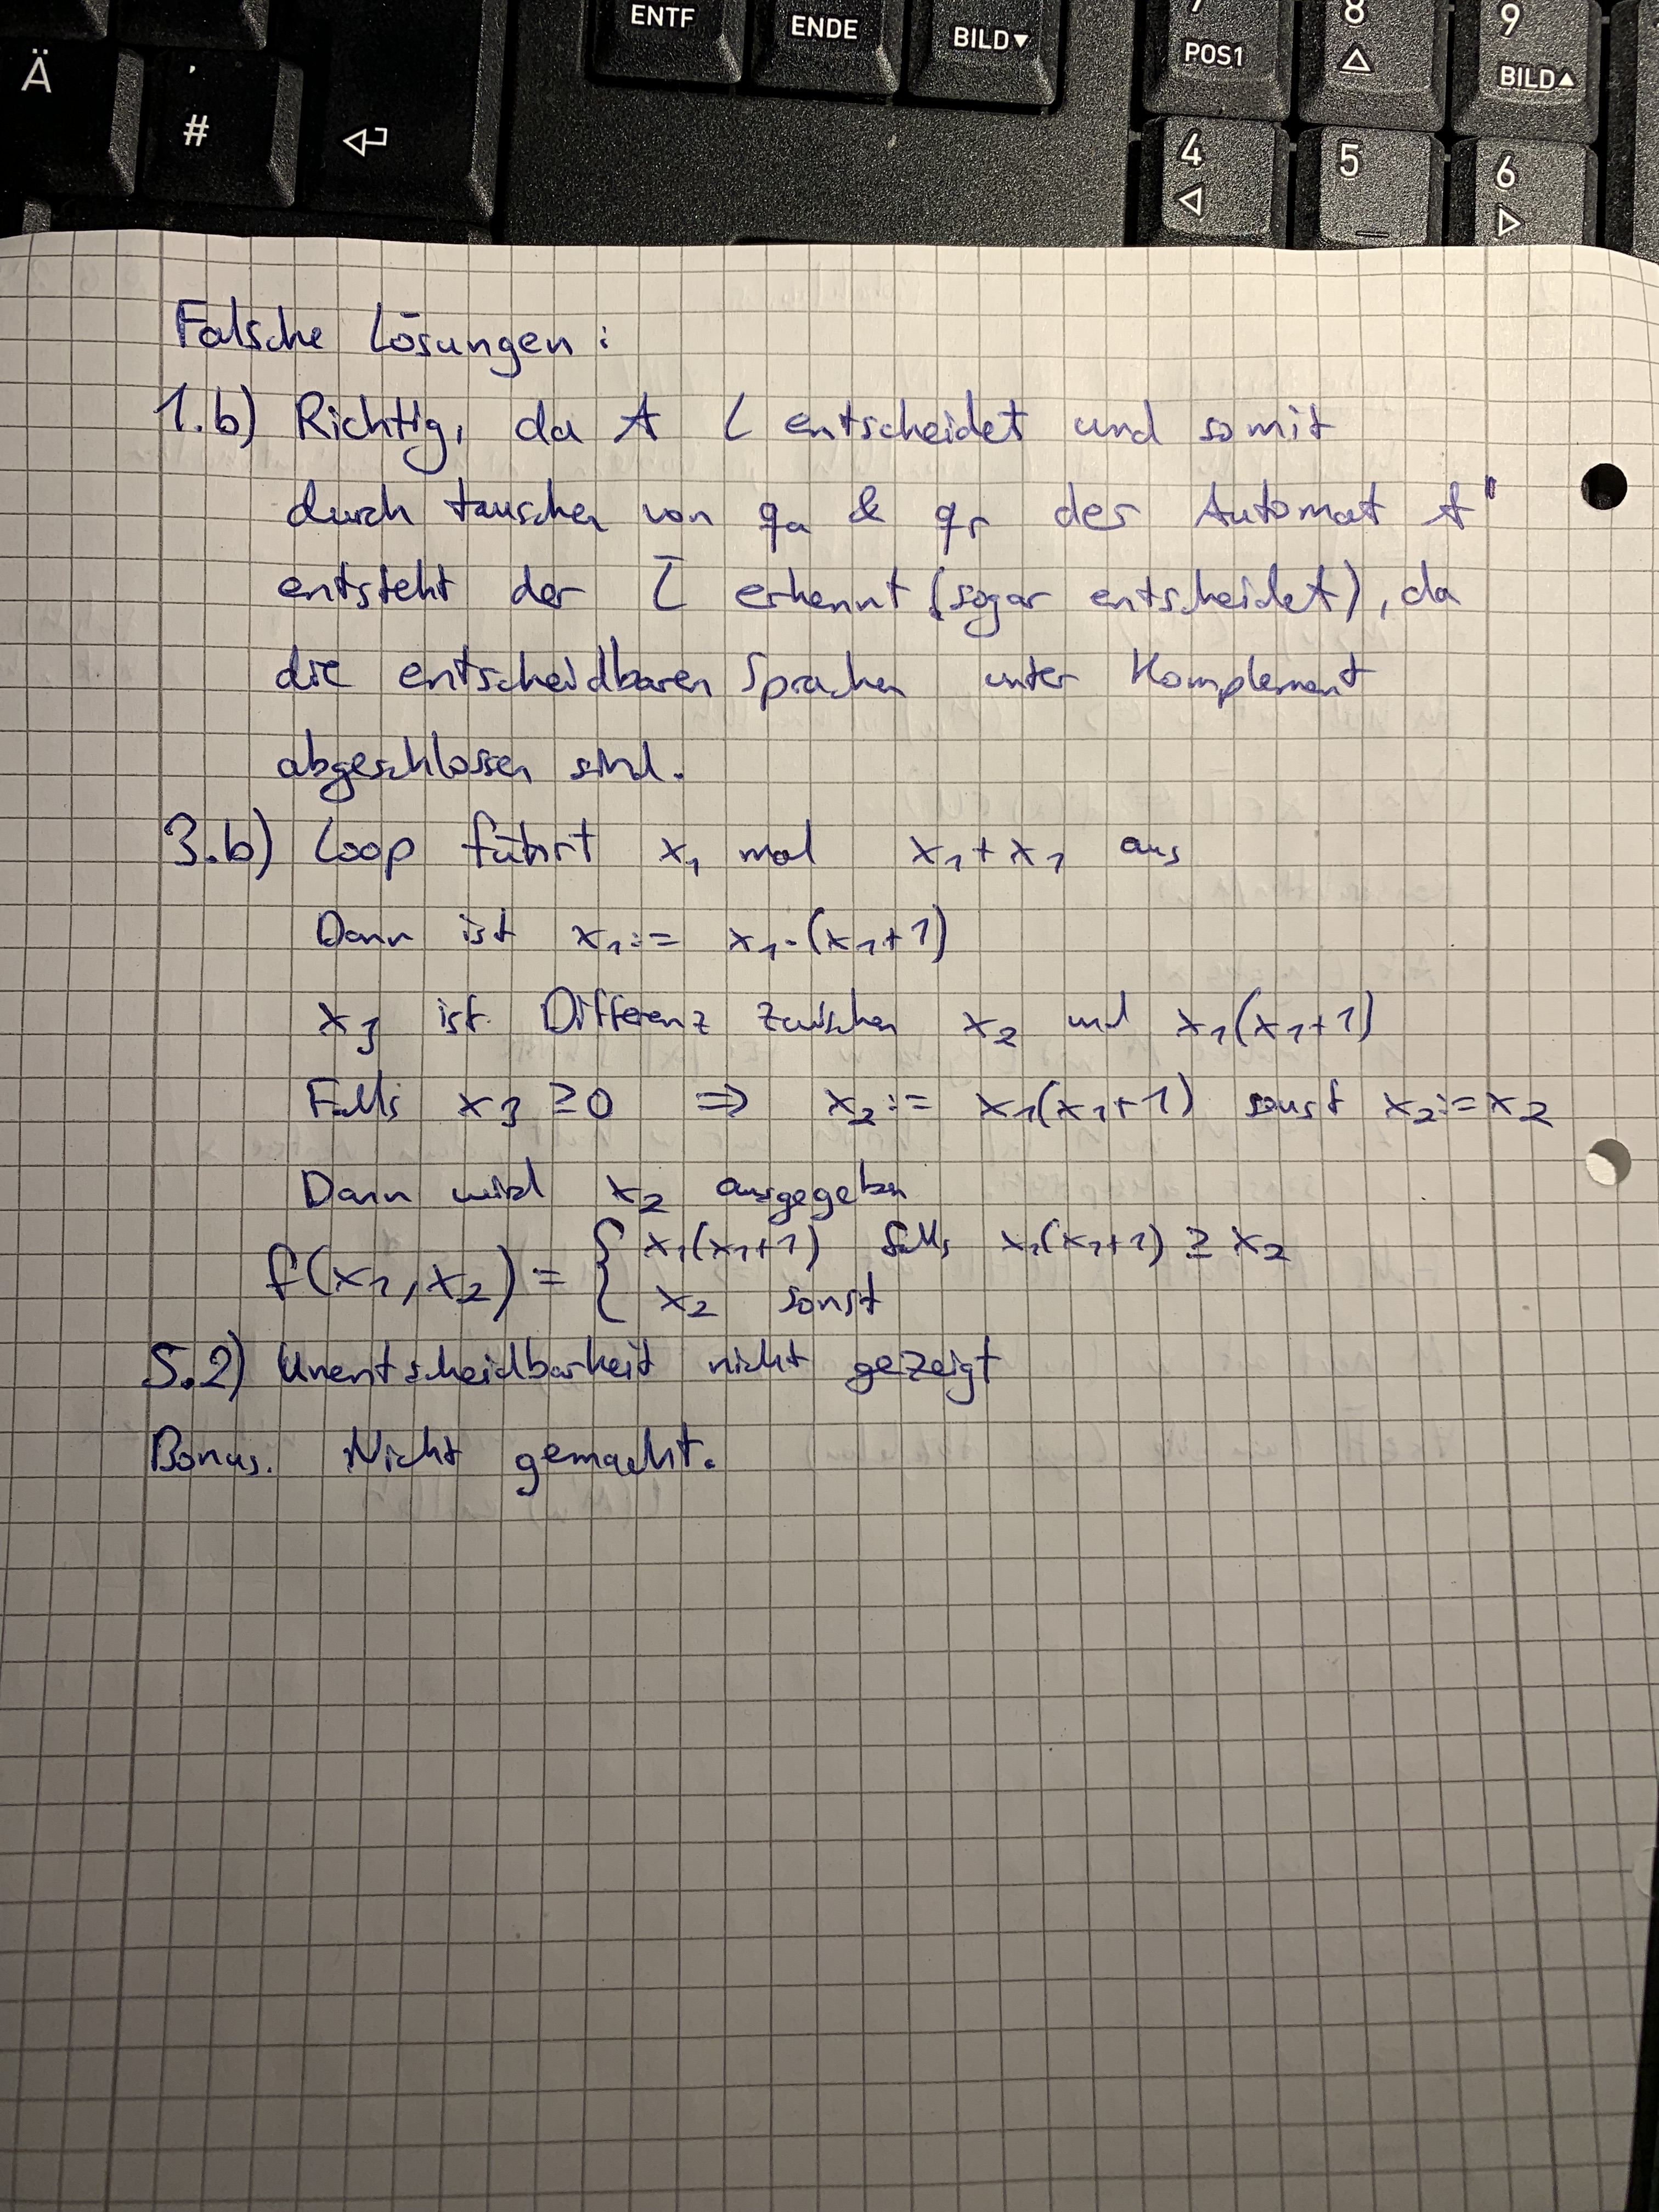 ENTF
ENDE
BILD▼
7
POS1
8
9
BILD▲
Ä
'
#
4
5
6
Falsche Lösungen:
1.b) Richtig, da A L entscheidet und somit
durch tauschen von qa & qr der Automat A'
entsteht der L̅ erkennt (sogar entscheidet), da
die entscheidbaren Sprachen unter Komplement
abgeschlossen sind.
3.b) Loop führt x₁ mal x₁+x₁ aus
Dann ist x₁:= x₁·(x₁+1)
x₃ ist Differenz zwischen x₂ und x₁(x₁+1)
Falls x₃ ≥0 ⇒ x₂:= x₁(x₁+1) sonst x₂:=x₂
Dann wird x₂ ausgegeben
f(x₁,x₂) = { x₁(x₁+1) falls x₁(x₁+1) ≥ x₂
x₂ sonst
5.2) Unentscheidbarkeit nicht gezeigt
Bonus. Nicht gemacht.